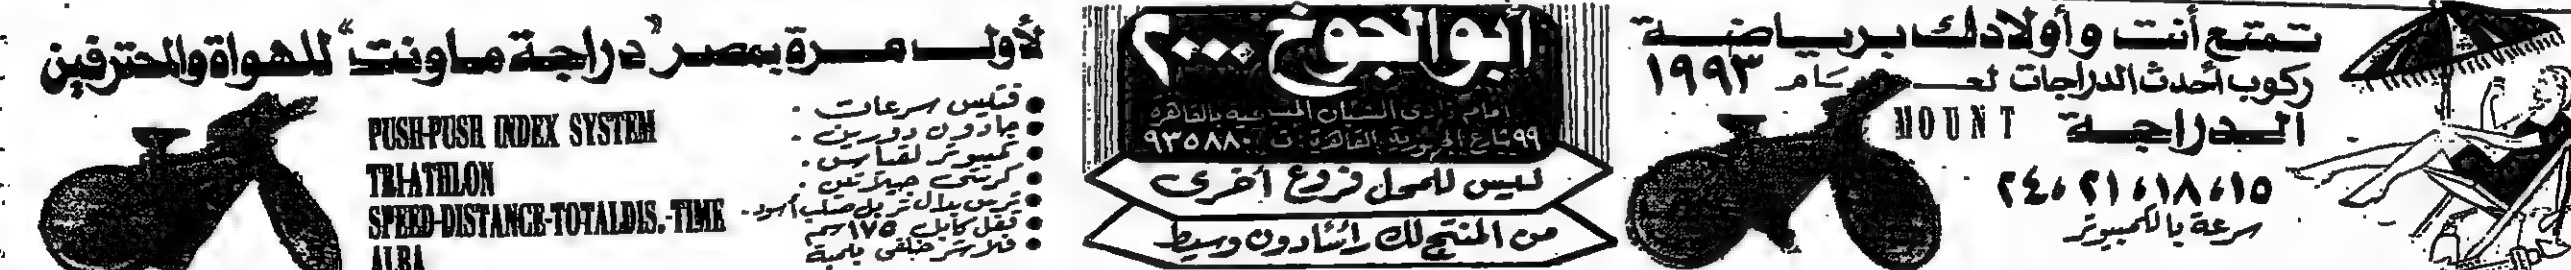 تمتع أنت وأولادك برياضة
ركوب أحدث الدراجات لعام ١٩٩٣
الدراجة MOUNT
١٥، ١٨، ٢١، ٢٤
سرعة بالكمبيوتر
أبو الجوخ ٢٠٠٠
أمام نادى الشبان المسيحية بالقاهرة
٩٩ شارع الجمهورية القاهرة : ت ٩٣٥٨٨٠
ليس للمحل فروع أخرى
من المنتج لك رأسًا دون وسيط
لأول مرة بمصر "دراجة ماونت" للهواة والمحترفين
● فتيس سرعات .
● جادون دورين .
● كمبيوتر لقياس .
● كرسى جيلاتين .
● ترس بدال تربل صلب أسود .
● قفل كابل ١٧٥ سم
● فلاشر خلفى بلمبة
PUSH-PUSH INDEX SYSTEM
TRI-ATHLON
SPEED-DISTANCE-TOTALDIS.-TIME
ALBA